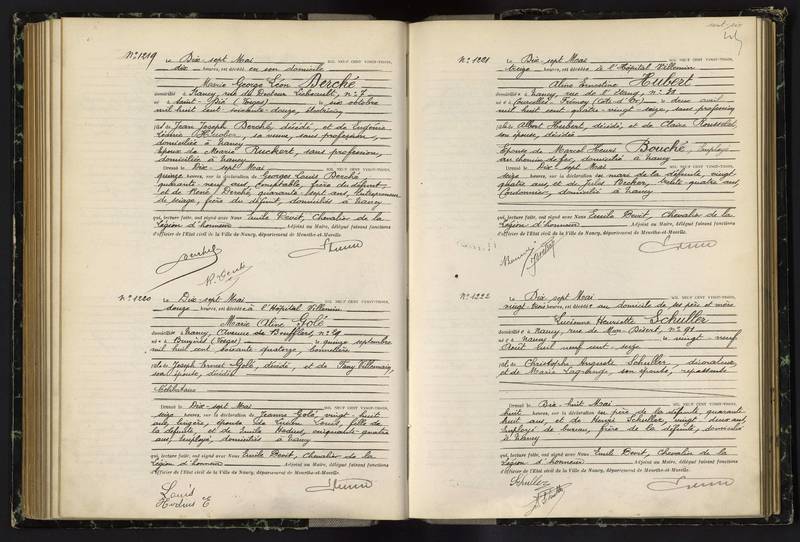 N° 1219
Le Dix-sept Mai MIL NEUF CENT VINGT-TROIS,
dix heures, est décédé en son domicile
Marie George Léon Berché
domicilié à Nancy, rue du Docteur Liébeault, n° 7
né à Saint-Dié (Vosges) le six octobre
mil huit cent soixante-douze, électricien
fils de Jean Joseph Berché, décédé, et de Eugénie
sa veuve, sans profession,
domiciliée à Nancy
Époux de Marie Ruckert, sans profession,
domiciliée à Nancy
Dressé le Dix-sept Mai MIL NEUF CENT VINGT-TROIS,
quinze heures, sur la déclaration de Georges Louis Berché,
quarante-neuf ans, comptable, frère du défunt,
et de René Berché, quarante-sept ans, Entrepreneur
de sciage, frère du défunt, domiciliés à Nancy
qui, lecture faite, ont signé avec Nous Emile Devit, Chevalier de la
Légion d'honneur Adjoint au Maire, délégué faisant fonctions
d'officier de l'Etat civil de la Ville de Nancy, département de Meurthe-et-Moselle.
N° 1220
Le Dix-sept Mai MIL NEUF CENT VINGT-TROIS,
douze heures, est décédée à l'Hôpital Villemin
Marie Aline Golé
domiciliée à Nancy, Avenue de Boufflers, n° 29
née à Bruyères (Vosges) le quinze septembre
mil huit cent soixante quatorze, bonnetière
fille de Joseph Ernest Golé, décédé, et de Fany Villemain,
son épouse, décédée
Célibataire
Dressé le Dix-sept Mai MIL NEUF CENT VINGT-TROIS,
seize heures, sur la déclaration de Jeanne Golé, vingt-huit
ans, lingère, épouse de Lucien Louis, fille de
la défunte, et de Emile Hodius, cinquante-quatre
ans, employé, domiciliés à Nancy
qui, lecture faite, ont signé avec Nous Emile Devit, Chevalier de la
Légion d'honneur Adjoint au Maire, délégué faisant fonctions
d'officier de l'Etat civil de la Ville de Nancy, département de Meurthe-et-Moselle.
Louis
Hodius E
N° 1221
Le Dix-sept Mai MIL NEUF CENT VINGT-TROIS,
treize heures, est décédée à l'Hôpital Villemin
Aline Ernestine Hubert
domiciliée à Nancy, rue de l'Etang, n° 30
née à (Côte d'Or) le deux avril
mil huit cent quatre-vingt-seize, sans profession
fille de Albert Hubert, décédé, et de Claire
son épouse, décédée
Épouse de Marcel Henri Bouché, Employé
au chemin de fer, domicilié à Nancy
Dressé le Dix-sept Mai MIL NEUF CENT VINGT-TROIS,
seize heures, sur la déclaration de mari de la défunte, vingt
quatre ans, et de Jules Becker, trente quatre ans,
Cordonnier, domiciliés à Nancy
qui, lecture faite, ont signé avec Nous Emile Devit, Chevalier de la
Légion d'honneur Adjoint au Maire, délégué faisant fonctions
d'officier de l'Etat civil de la Ville de Nancy, département de Meurthe-et-Moselle.
N° 1222
Le Dix-sept Mai MIL NEUF CENT VINGT-TROIS,
vingt-trois heures, est décédée au domicile de ses père et mère
Lucienne Henriette Schuller
domiciliée à Nancy, rue de Mon-Désert, n° 91
née à Nancy le vingt-neuf
Août mil neuf cent seize
fille de Christophe Auguste Schuller
et de Marie Lagrange, son épouse, repasseuse
Dressé le Dix-huit Mai MIL NEUF CENT VINGT-TROIS,
huit heures, sur la déclaration de père de la défunte, quarante
huit ans, et de Henri Schuller, vingt deux ans,
employé de bureau, frère de la défunte, domiciliés
à Nancy
qui, lecture faite, ont signé avec Nous Emile Devit, Chevalier de la
Légion d'honneur Adjoint au Maire, délégué faisant fonctions
d'officier de l'Etat civil de la Ville de Nancy, département de Meurthe-et-Moselle.
Schuller